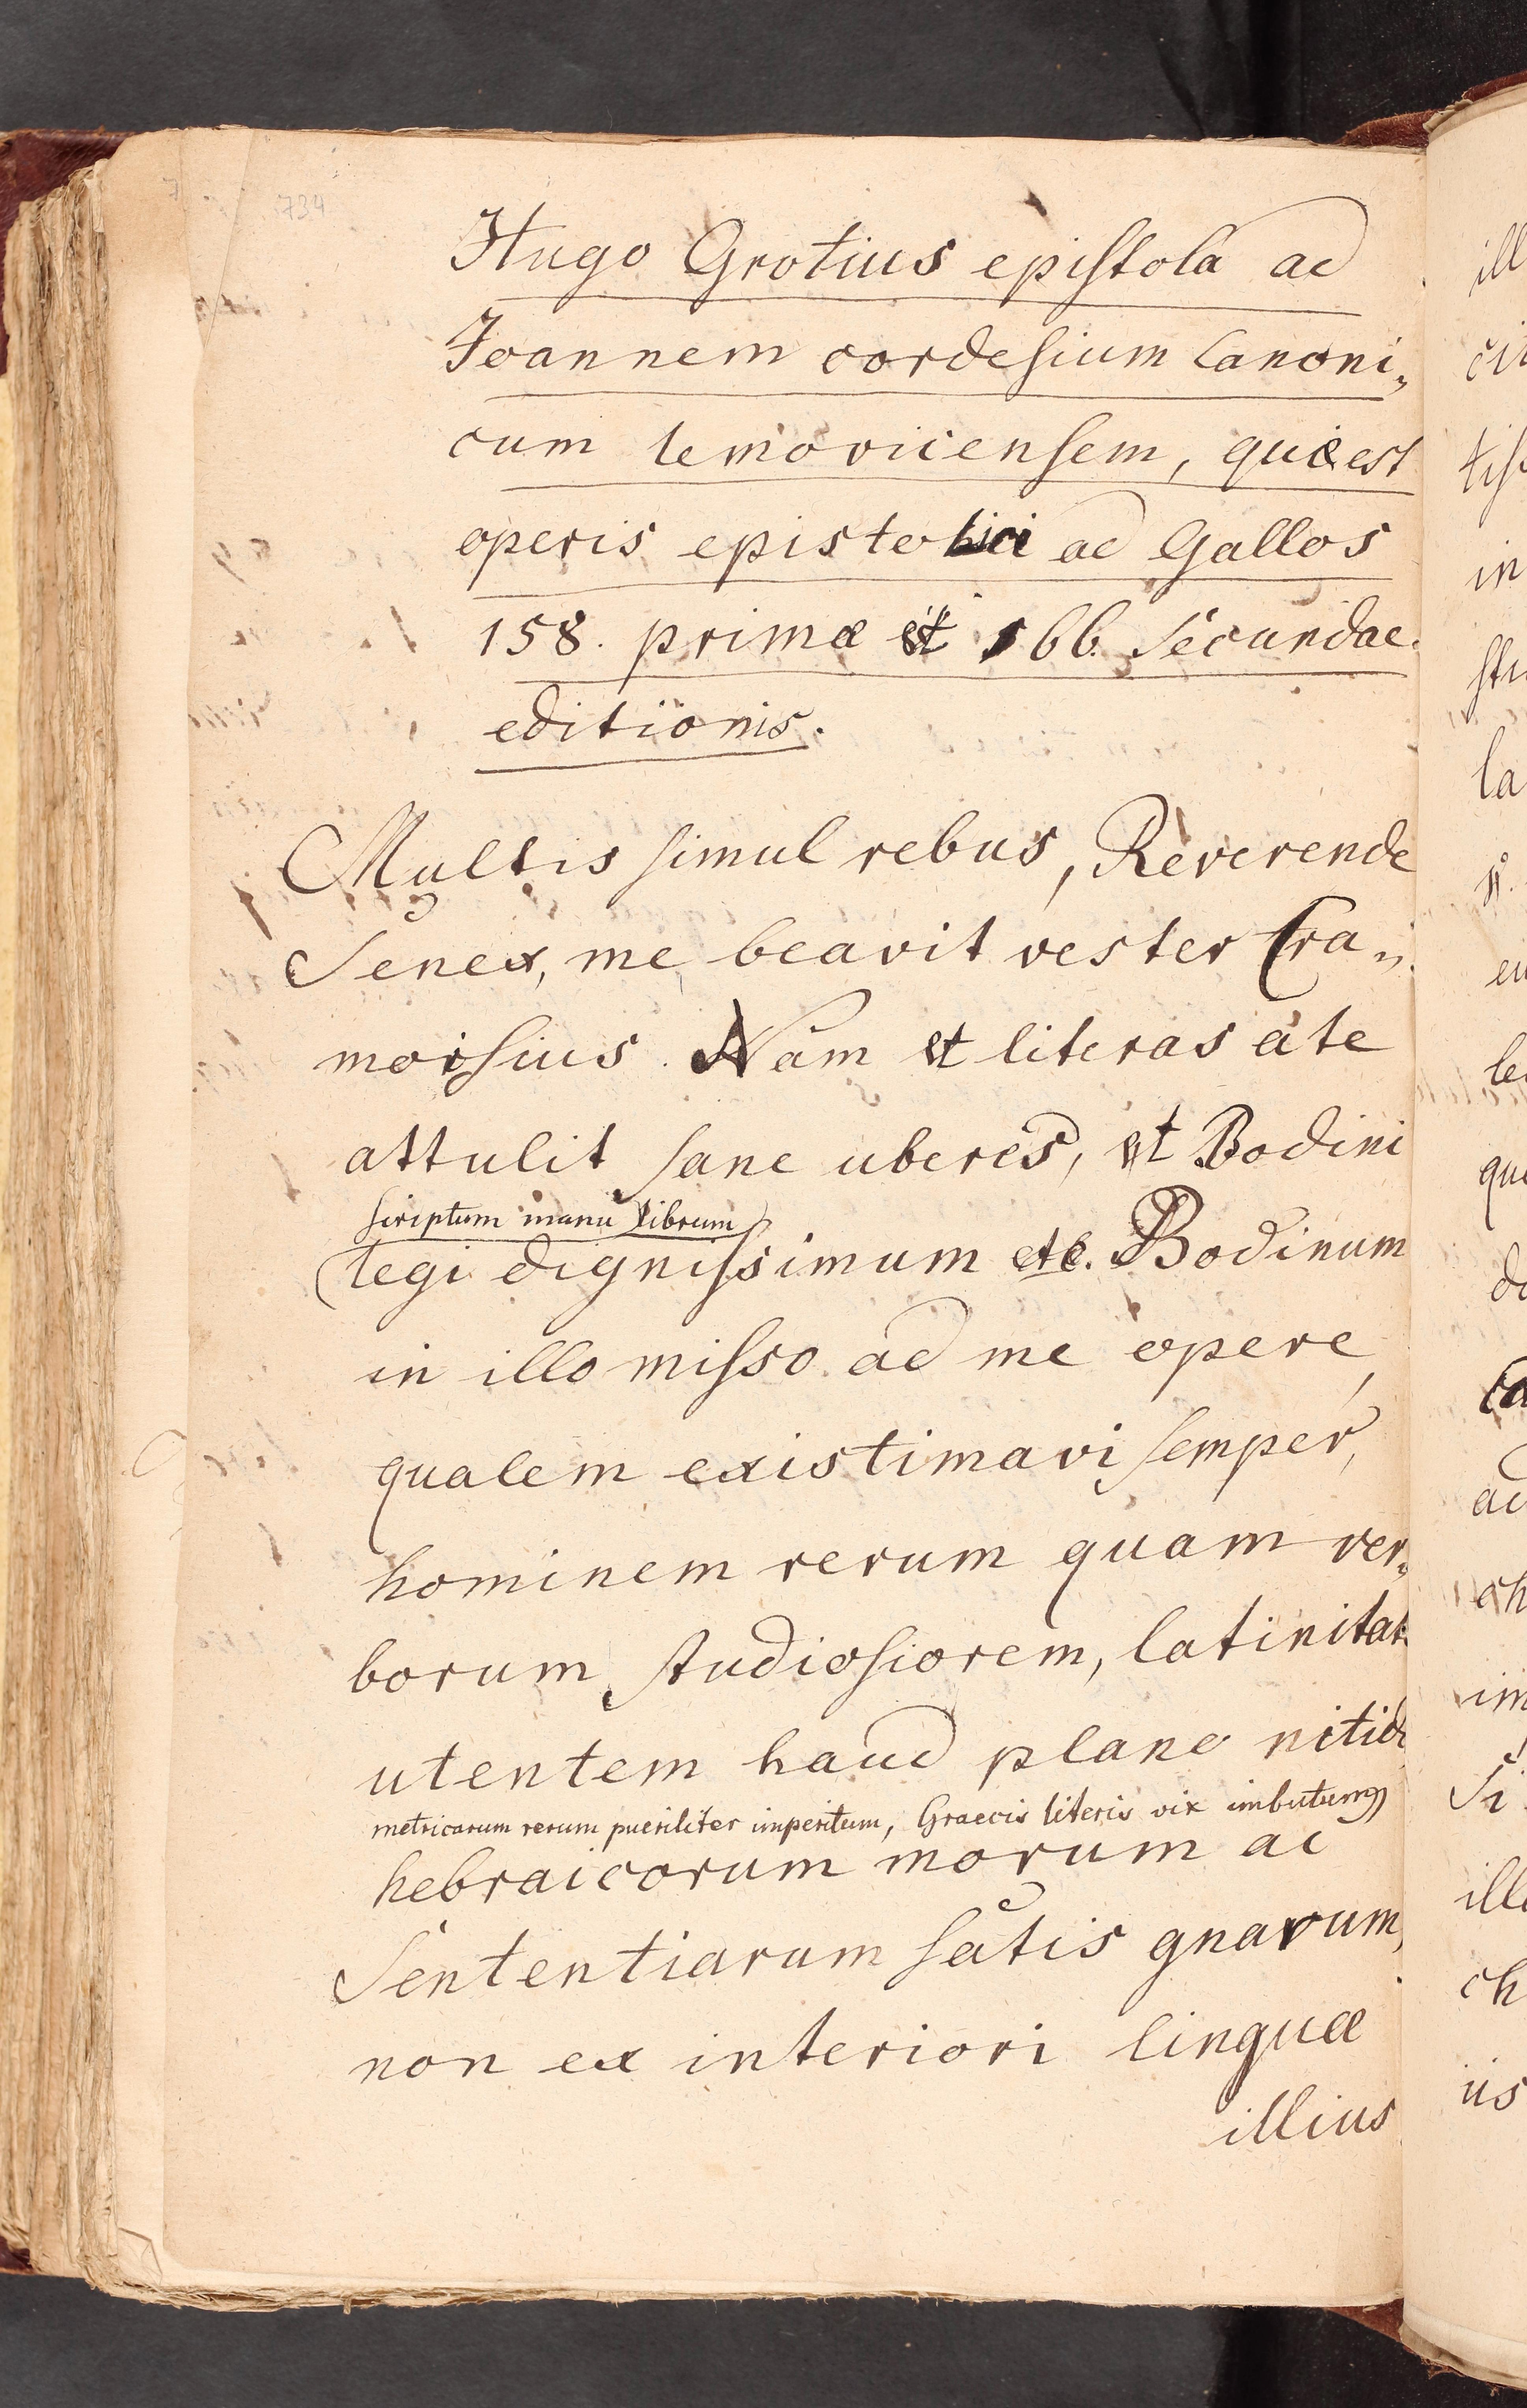 734
Hugo Grotius epistola ad
Joannem cordesium Canoni„
cum lemovicensem, quæ est
operis epistolici ad Gallos
158. primæ et 166. Secundae
editionis.
Multis simul rebus, Reverende
Senex, me beavit vester Cra„
moisius. Nam et literas a te
attulit sane uberes, et Bodini
scriptum manu librum
legi dignissimum etc. Bodinum
in illo misso ad me opere,
qualem existimavi semper,
hominem rerum quam ver„
borum studiosiorem, latinitat
utentem haud plane nitid
metricarum rerum pueriliter imperitum, Graecis literis vix imbutum,
hebraicorum morum ac
Sententiarum satis gnarum,
non ex interiori linguæ
illius